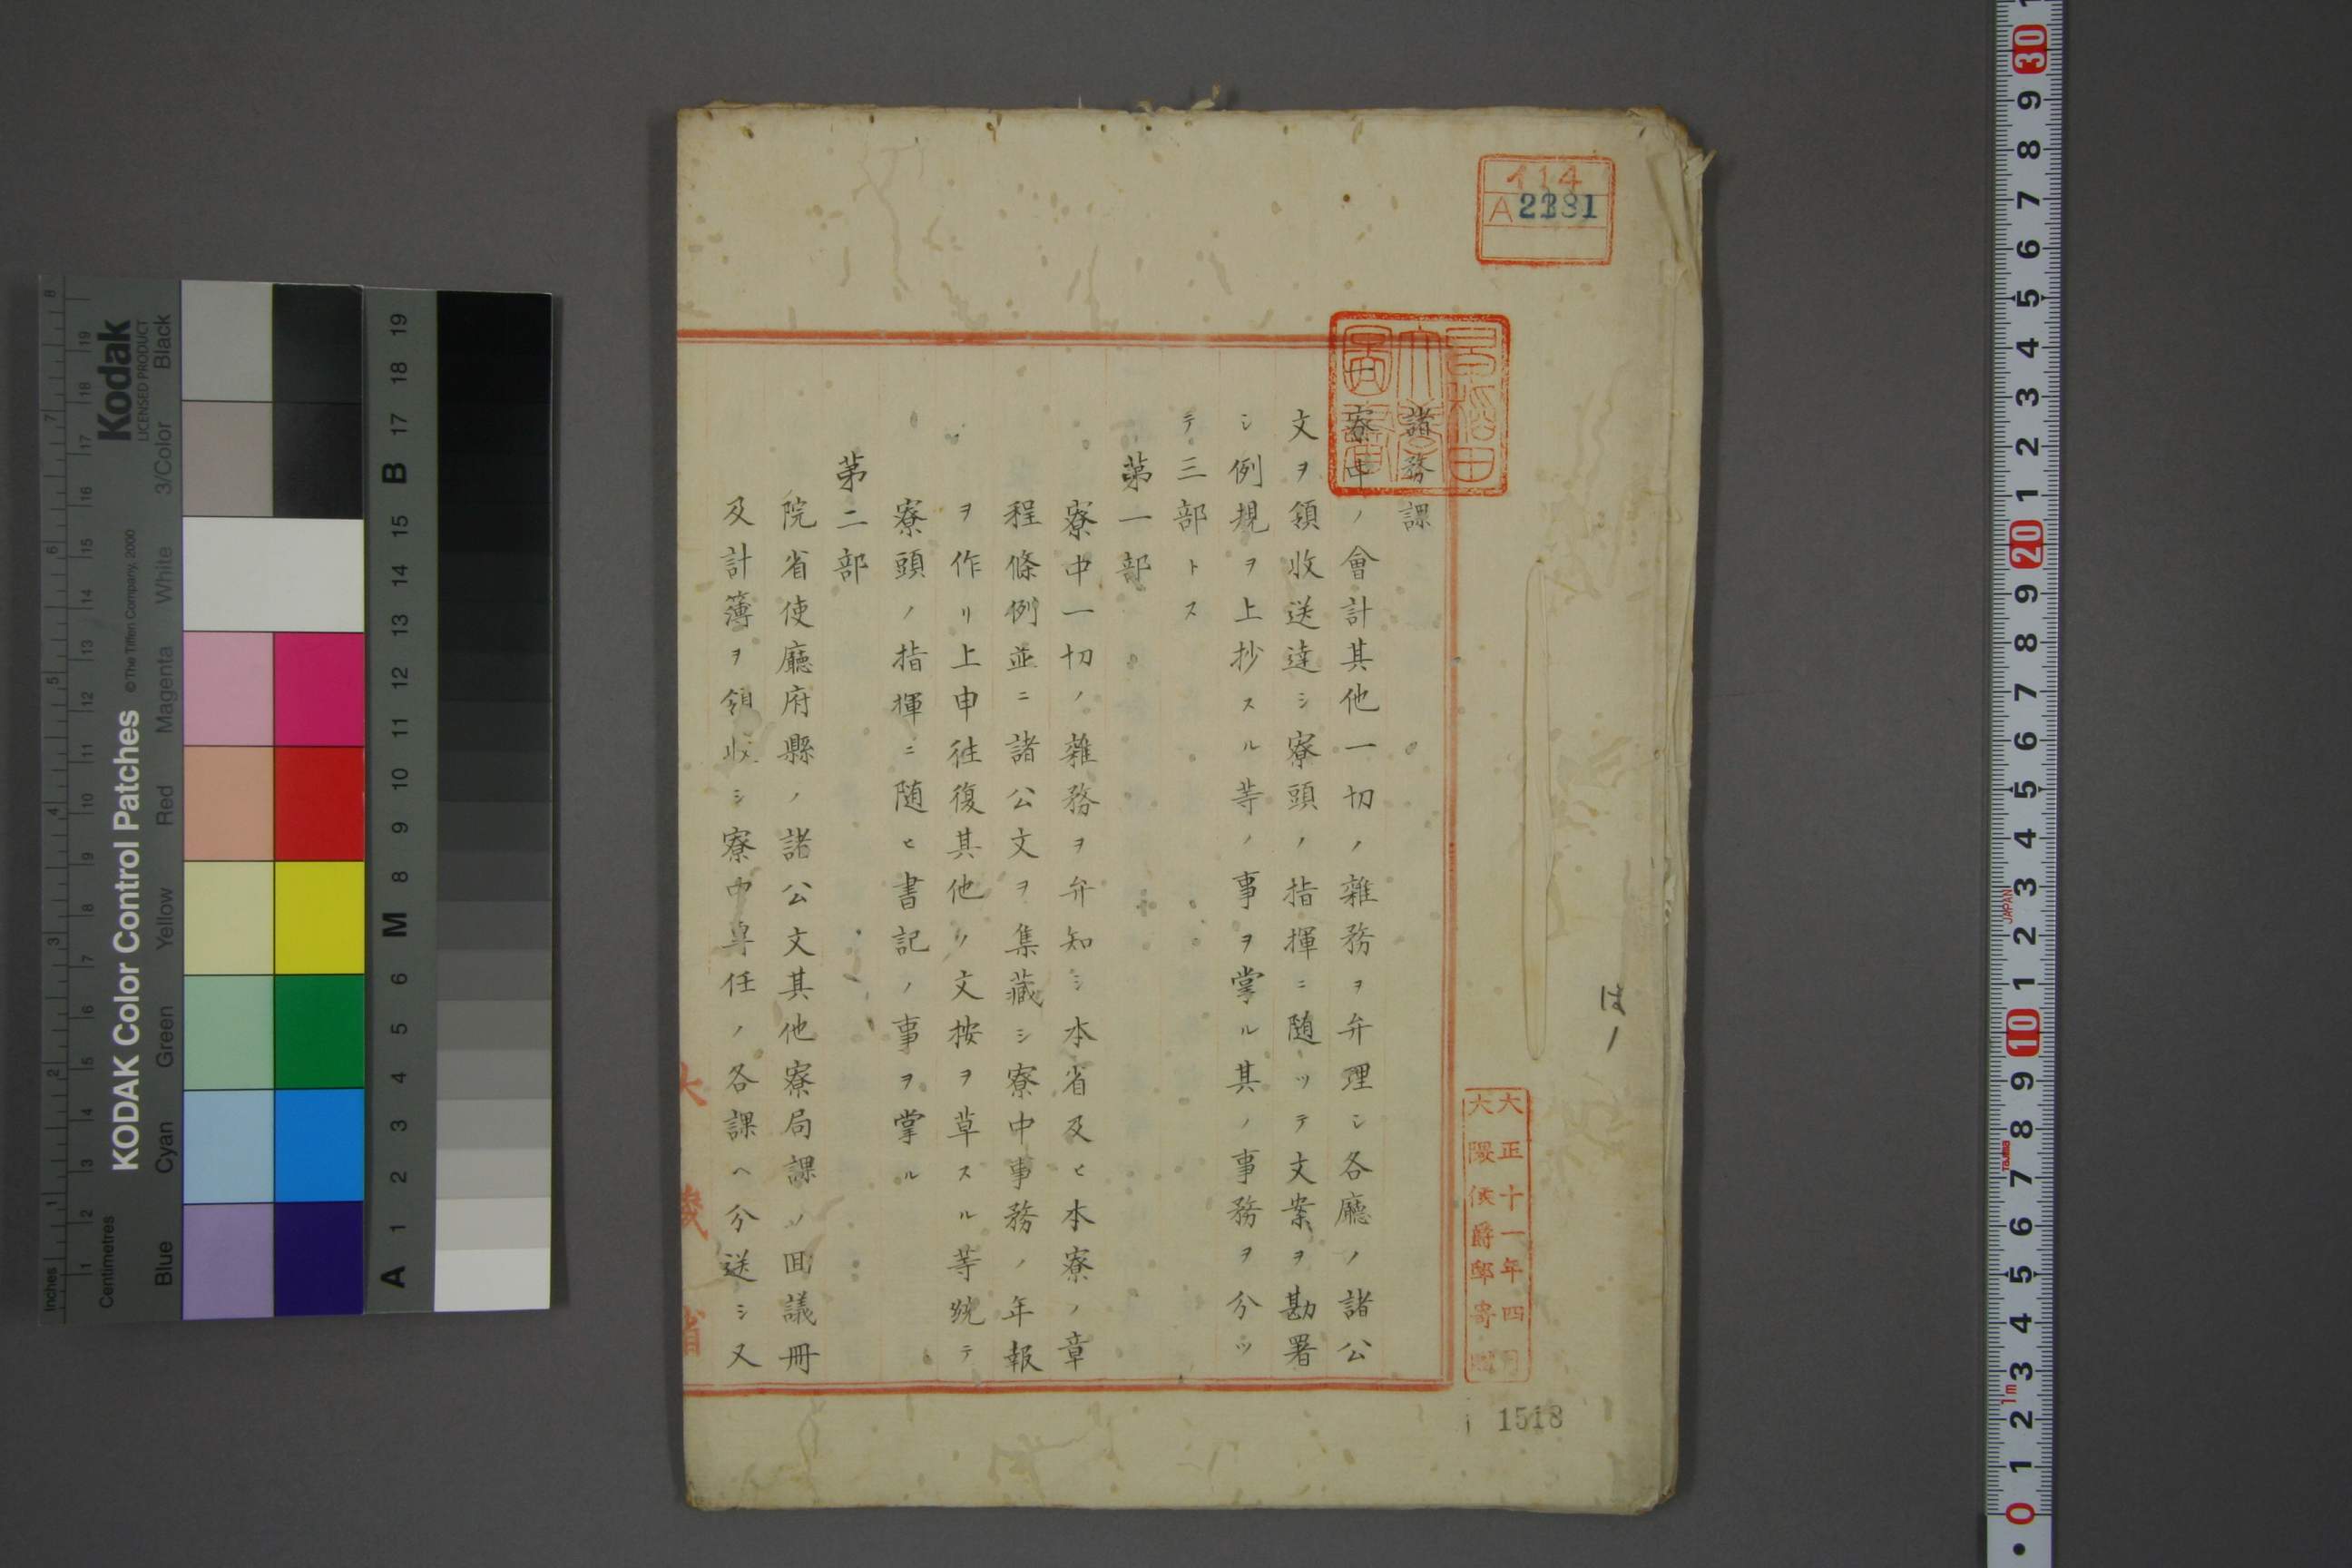 諸務課
寮中ノ會計其他一切ノ雜務ヲ弁理シ各廳ノ諸公
文ヲ領收送達シ寮頭ノ指揮ニ随ツテ文案ヲ勘署
シ例規ヲ上抄スル等ノ事ヲ掌ル其ノ事務ヲ分ツ
テ三部トス
第一部
寮中一切ノ雜務ヲ弁知シ本省及ヒ本寮ノ章
程條例並ニ諸公文ヲ集藏シ寮中事務ノ年報
ヲ作リ上申往復其他ノ文按ヲ草スル等統テ
寮頭ノ指揮ニ随ヒ書記ノ事ヲ掌ル
第二部
院省使廳府縣ノ諸公文其他寮局課ノ回議冊
及計簿ヲ領收シ寮中専任ノ各課ヘ分送シ又
大藏省
イ14
A2381
早稲田
大學
圖書
大正十一年四月
大隈侯爵邸寄贈
1518
Kodak
LICENSED PRODUCT
KODAK Color Control Patches
©The Tiffen Company, 2000
Inches
Centimetres
Blue
Cyan
Green
Yellow
Red
Magenta
White
3/Color
Black
A 1 2 3 4 5 6 M 8 9 10 11 12 13 14 15 B 17 18 19
JAPAN
Tajima
1m